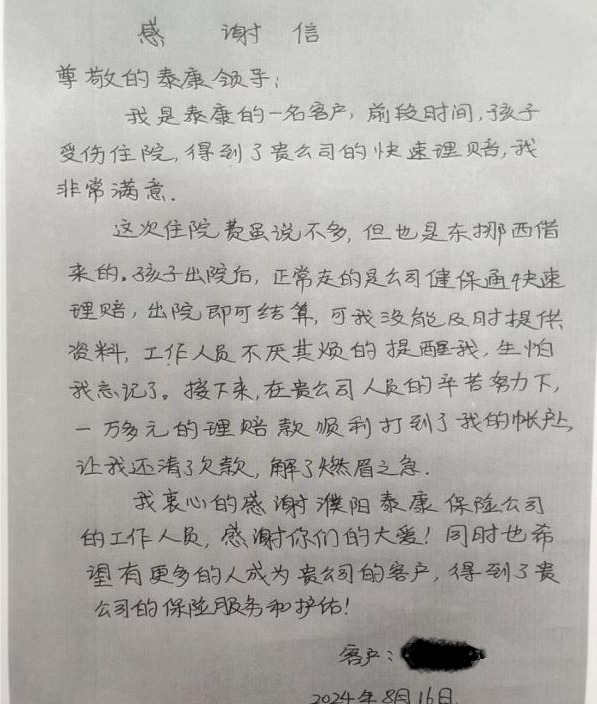 感谢信
尊敬的泰康领导：
我是泰康的一名客户，前段时间，孩子
受伤住院，得到了贵公司的快速理赔，我
非常满意.
这次住院费虽说不多，但也是东挪西借
来的。孩子出院后，正常走的是公司健保通快速
理赔，出院即可结算，可我没能及时提供
资料，工作人员不厌其烦的提醒我，生怕
我忘记了。接下来，在贵公司人员的辛苦努力下，
一万多元的理赔款顺利打到了我的帐户上，
让我还清了欠款，解了燃眉之急.
我衷心的感谢濮阳泰康保险公司
的工作人员，感谢你们的大爱！同时也希
望有更多的人成为贵公司的客户，得到了贵
公司的保险服务和护佑！
客户：
2024年8月16日